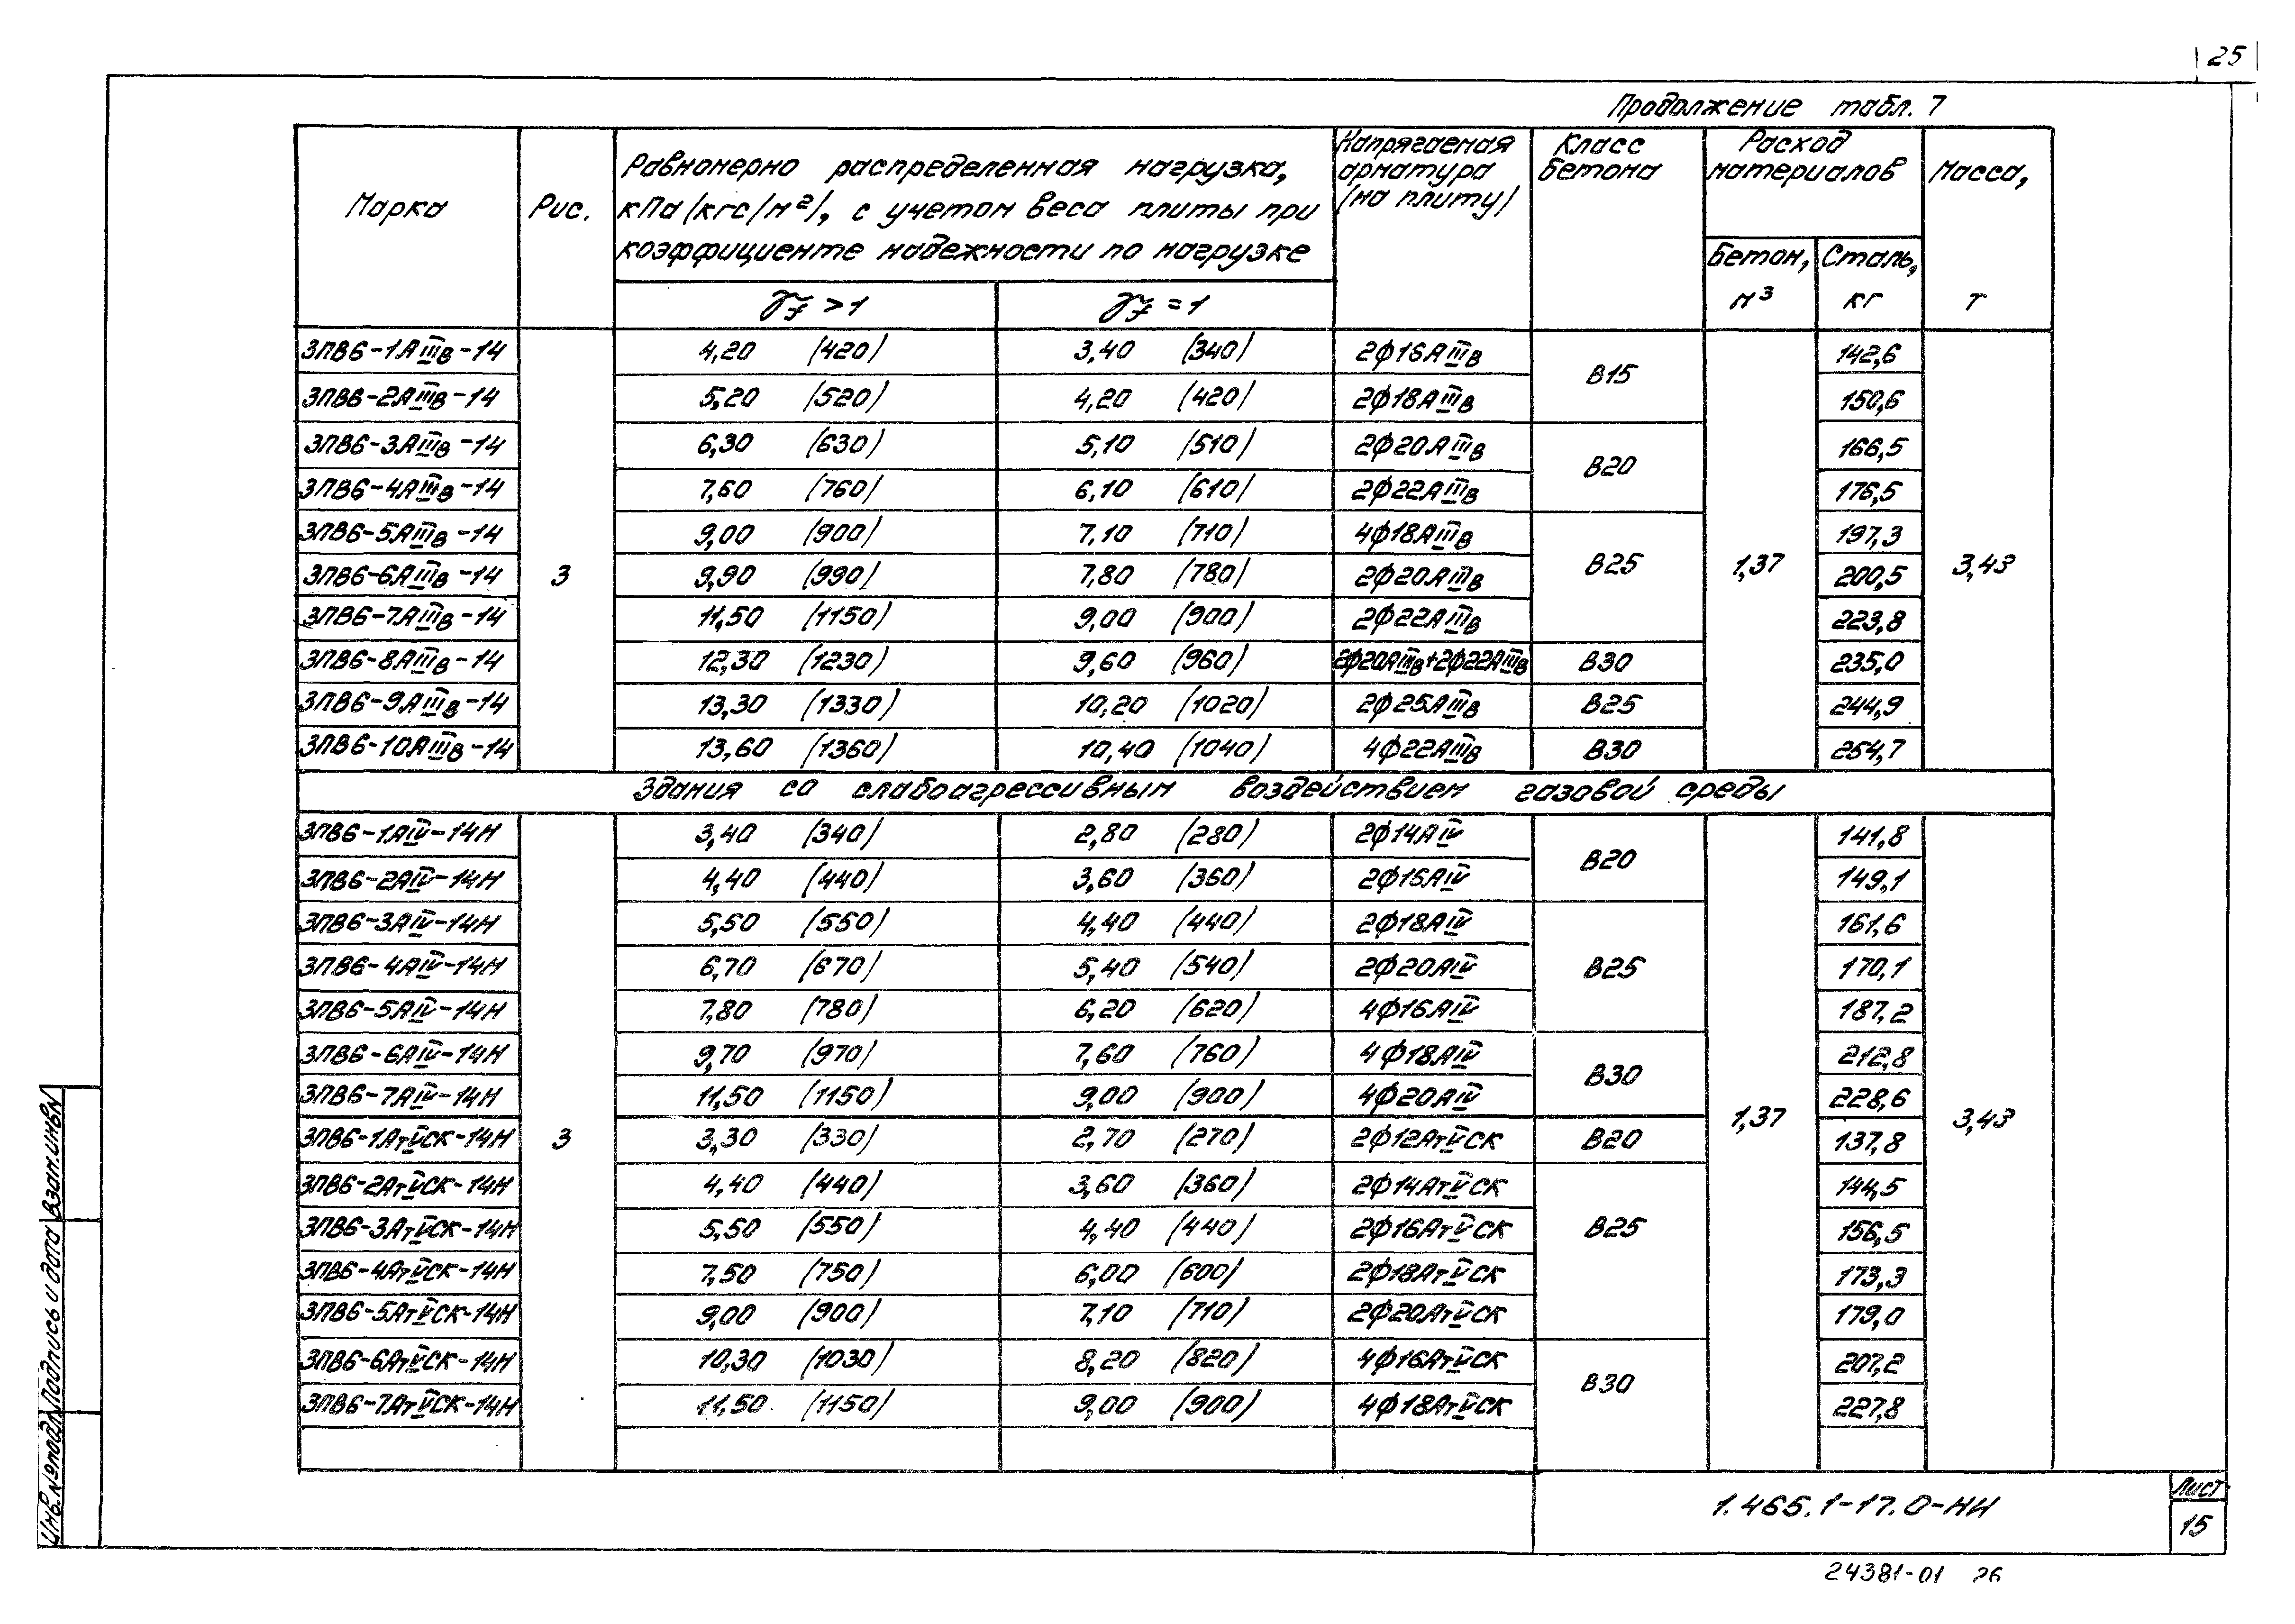 25
Продолжение табл. 7
Марка
Рис.
Равномерно распределенная нагрузка,
кПа (кгс/м²), с учетом веса плиты при
коэффициенте надежности по нагрузке
γf > 1
γf = 1
Напрягаемая
арматура
(на плиту)
Класс
бетона
Расход
материалов
Бетон,
м³
Сталь,
кг
Масса,
т
3ПВ6-1АIIIв-14 4,20 (420) 3,40 (340) 2ф16АIIIв В15 142,6
3ПВ6-2АIIIв-14 5,20 (520) 4,20 (420) 2ф18АIIIв 150,6
3ПВ6-3АIIIв-14 6,30 (630) 5,10 (510) 2ф20АIIIв В20 166,5
3ПВ6-4АIIIв-14 7,60 (760) 6,10 (610) 2ф22АIIIв 176,5
3ПВ6-5АIIIв-14 9,00 (900) 7,10 (710) 4ф18АIIIв 197,3
3ПВ6-6АIIIв-14 3 9,90 (990) 7,80 (780) 2ф20АIIIв В25 1,37 200,5 3,43
3ПВ6-7АIIIв-14 11,50 (1150) 9,00 (900) 2ф22АIIIв 223,8
3ПВ6-8АIIIв-14 12,30 (1230) 9,60 (960) 2ф20АIIIв+2ф22АIIIв В30 235,0
3ПВ6-9АIIIв-14 13,30 (1330) 10,20 (1020) 2ф25АIIIв В25 244,9
3ПВ6-10АIIIв-14 13,60 (1360) 10,40 (1040) 4ф22АIIIв В30 254,7
Здания со слабоагрессивным воздействием газовой среды
3ПВ6-1АIV-14Н 3,40 (340) 2,80 (280) 2ф14АIV В20 141,8
3ПВ6-2АIV-14Н 4,40 (440) 3,60 (360) 2ф16АIV 149,1
3ПВ6-3АIV-14Н 5,50 (550) 4,40 (440) 2ф18АIV 161,6
3ПВ6-4АIV-14Н 6,70 (670) 5,40 (540) 2ф20АIV В25 170,1
3ПВ6-5АIV-14Н 7,80 (780) 6,20 (620) 4ф16АIV 187,2
3ПВ6-6АIV-14Н 9,70 (970) 7,60 (760) 4ф18АIV В30 212,8
3ПВ6-7АIV-14Н 11,50 (1150) 9,00 (900) 4ф20АIV 228,6
3ПВ6-1АтVСК-14Н 3 3,30 (330) 2,70 (270) 2ф12АтVСК В20 1,37 137,8 3,43
3ПВ6-2АтVСК-14Н 4,40 (440) 3,60 (360) 2ф14АтVСК 144,5
3ПВ6-3АтVСК-14Н 5,50 (550) 4,40 (440) 2ф16АтVСК В25 156,5
3ПВ6-4АтVСК-14Н 7,50 (750) 6,00 (600) 2ф18АтVСК 173,3
3ПВ6-5АтVСК-14Н 9,00 (900) 7,10 (710) 2ф20АтVСК 179,0
3ПВ6-6АтVСК-14Н 10,30 (1030) 8,20 (820) 4ф16АтVСК В30 207,2
3ПВ6-7АтVСК-14Н 11,50 (1150) 9,00 (900) 4ф18АтVСК 227,8
Инв.№подл. Подпись и дата Взам.инв.N
1.465.1-17.0-НИ
Лист
15
24381-01 26